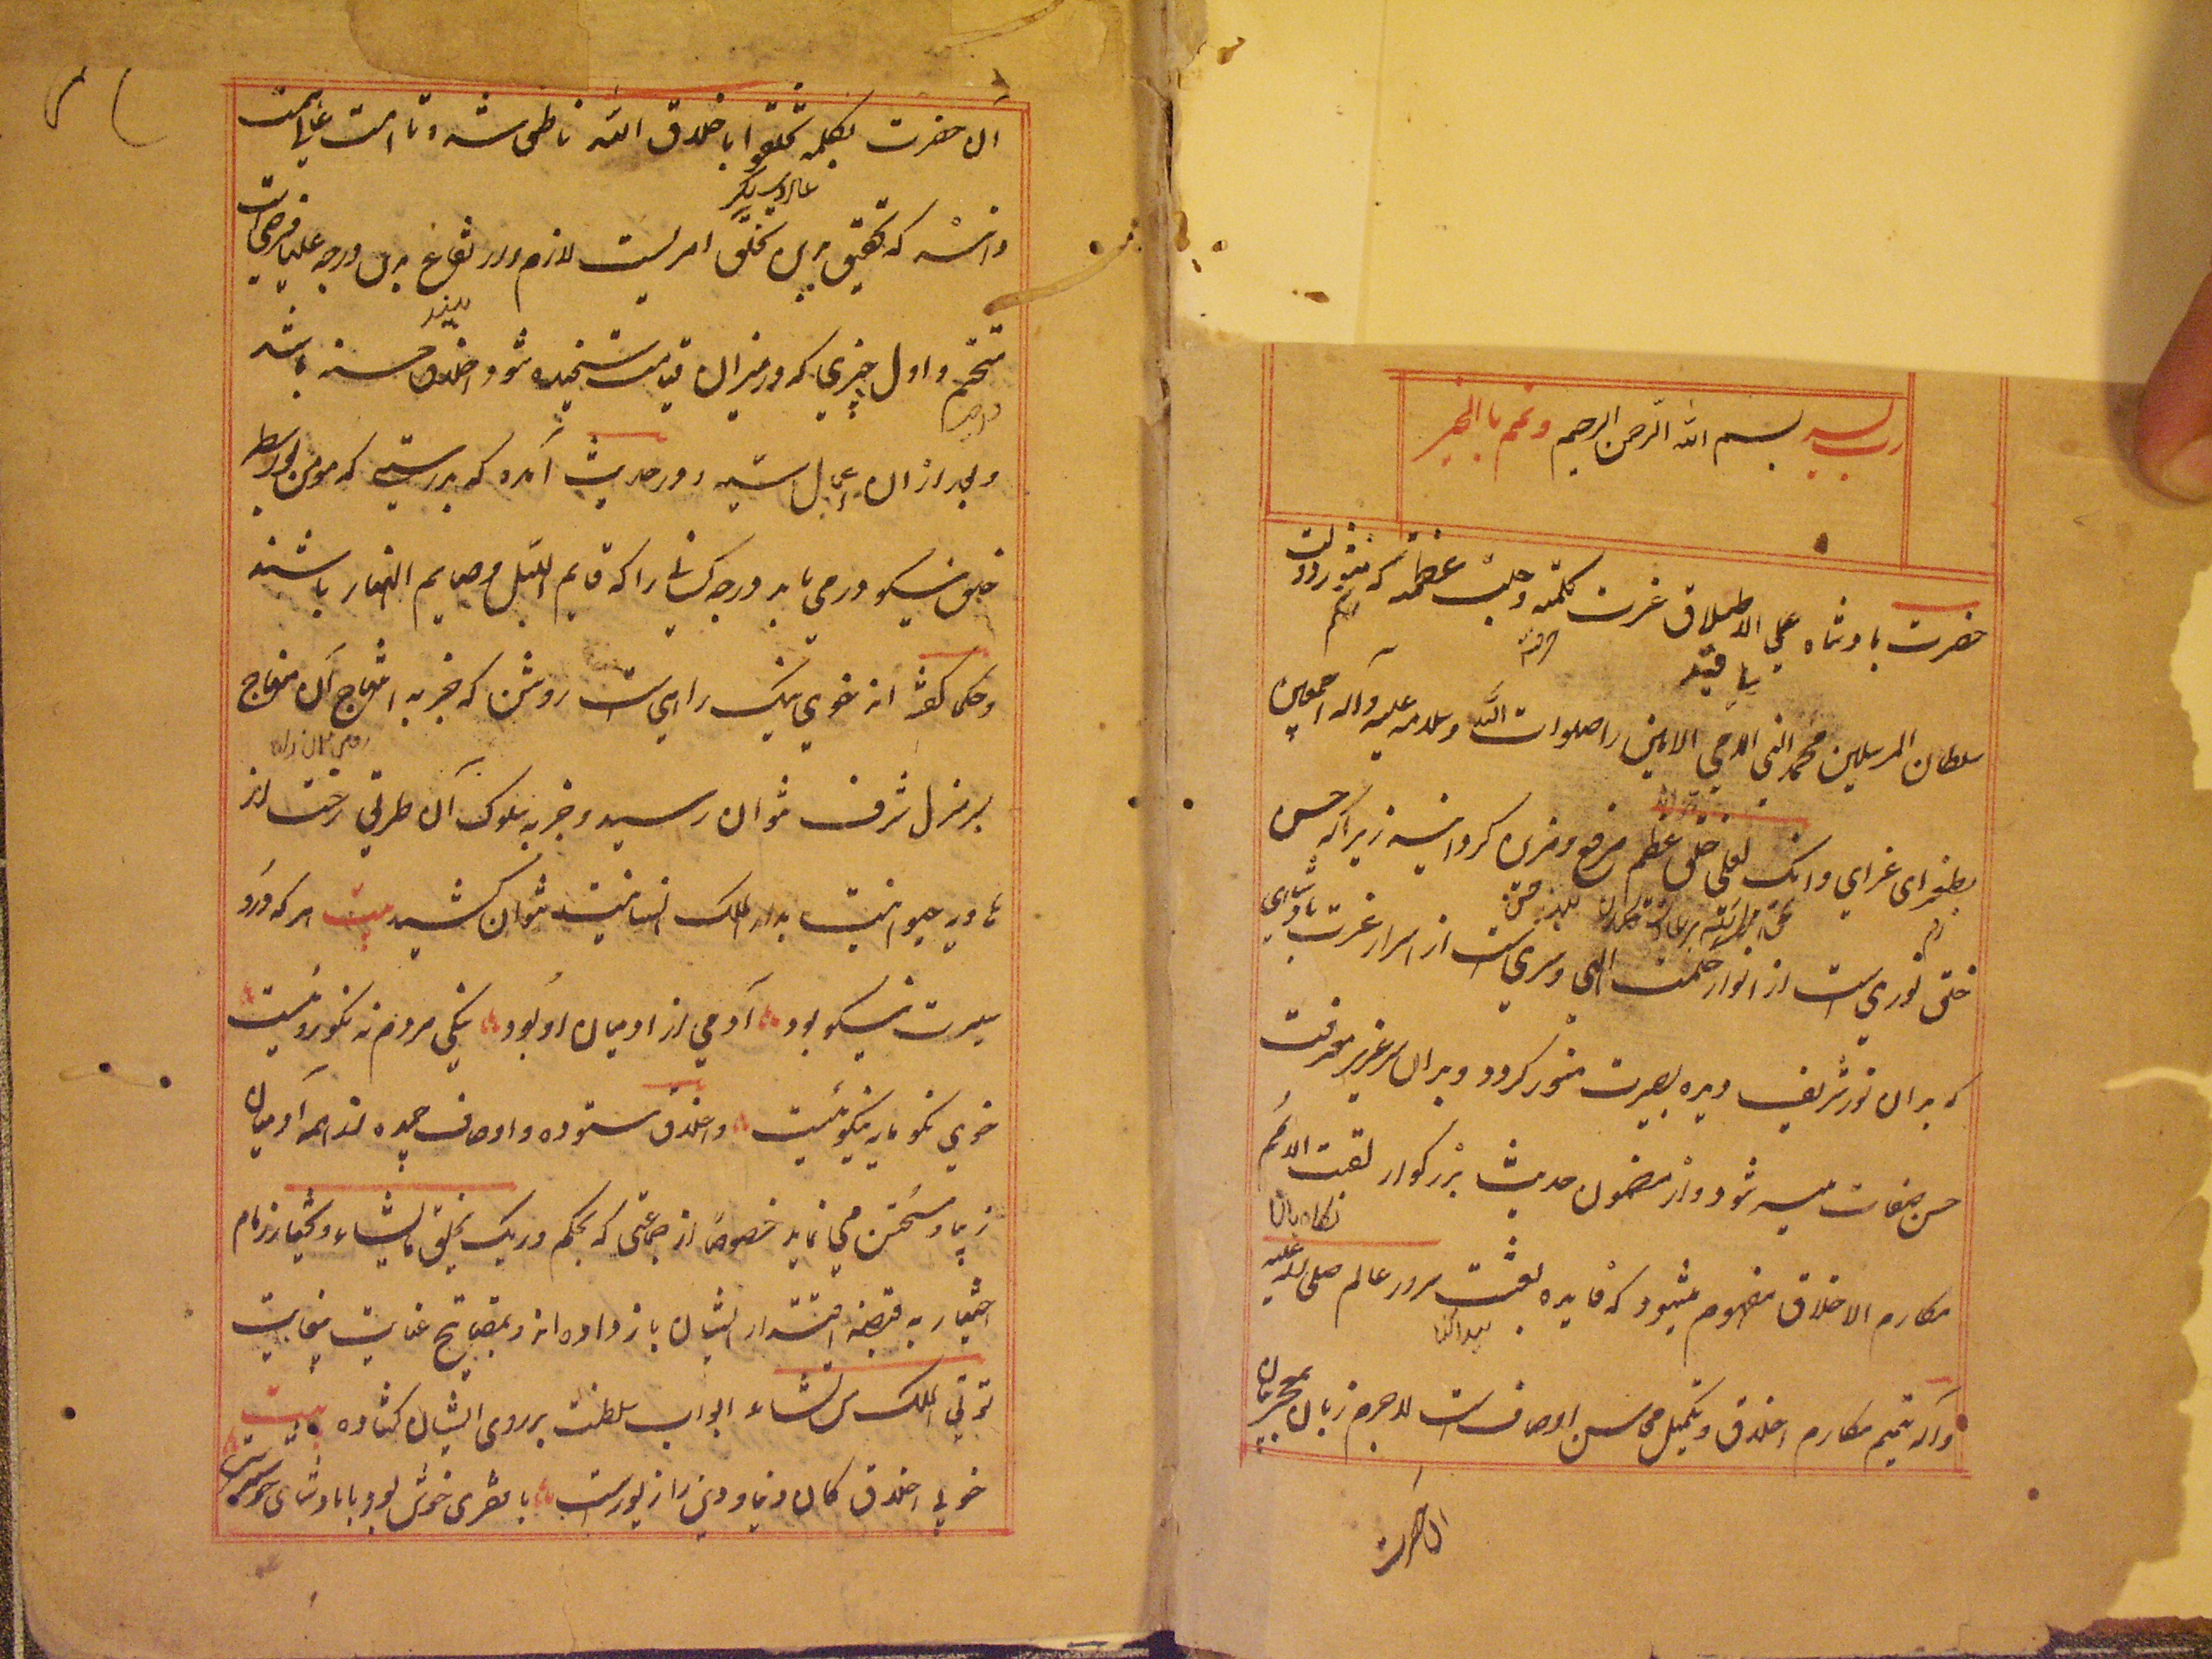 رب یسر بسم الله الرحمن الرحیم وتمم بالخیر
حضرت بادشاه علی الاطلاق عزت کلمته وجلت عظمته که منشور دولت
یافتند
سلطان المرسلین محمد النبی الامی الامین را صلوات الله وسلامه علیه وآله اجمعین
بطغرای غرای وانک لعلی خلق عظیم موقع و مزین گردانیده زیرا که حسن
خلق نوریست از انوار حکمت الهی وسریست از اسرار عزت بادشاهی
که بدان نور شریف دیده بصیرت منور گردد وبدان سر عزیز معرفت
حسن صفات میسر شود واز مضمون حدیث بزرگوار بعثت لاتمم
مکارم الاخلاق مفهوم میشود که فایده بعثت سرور عالم صلی الله علیه
وآله تتمیم مکارم اخلاق وتکمیل محاسن اوصاف است لاجرم زبان معجز بیان
آنحضرت
آن حضرت بکلمه تخلقوا باخلاق الله ناطق شده وتا امت عالی همت
دانند که تحقیق بدین تخلق امریست لازم وارتفاع بدین درجه علیا فرضی است
بلند
متحتم و اول چیزی که در میزان قیامت سنجیده شود اخلاق حسنه باشد
وبعد از ان اعمال سنیه ودر حدیث آمده که بدرستی که مومن بواسطه
خلق نیکو در می یابد درجه کسانی را که قایم اللیل وصایم النهار باشند
وحکما گفته اند خوی نیک راهی است روشن که جز به انتهاج آن منهاج
بر منزل شرف نتوان رسید وجز به سلوک آن طریق رخت از
هاویه حیوانیت بدار الملک انسانیت نتوان کشید بیت هر که درو
سیرت نیکو بود آدمی از آدمیان او بود نیکی مردم نه نکو روئیست
خوی نکو مایه نیکوئیست واخلاق ستوده واوصاف حمیده از همه آدمیان
زیبا ومستحسن می نماید خصوصاً از جماعتی که بحکم وربک یخلق ما یشاء ویختار زمام
اختیار به قبضه اقتدار ایشان باز داده اند وبمفاتیح عنایت بیغایت
تؤتی الملک من تشاء ابواب سلطنت بر روی ایشان کشاده بیت
خوبی اخلاق کان دنیا ودین را زیورست با فقیری خوش بود با بادشاهی خوشترست